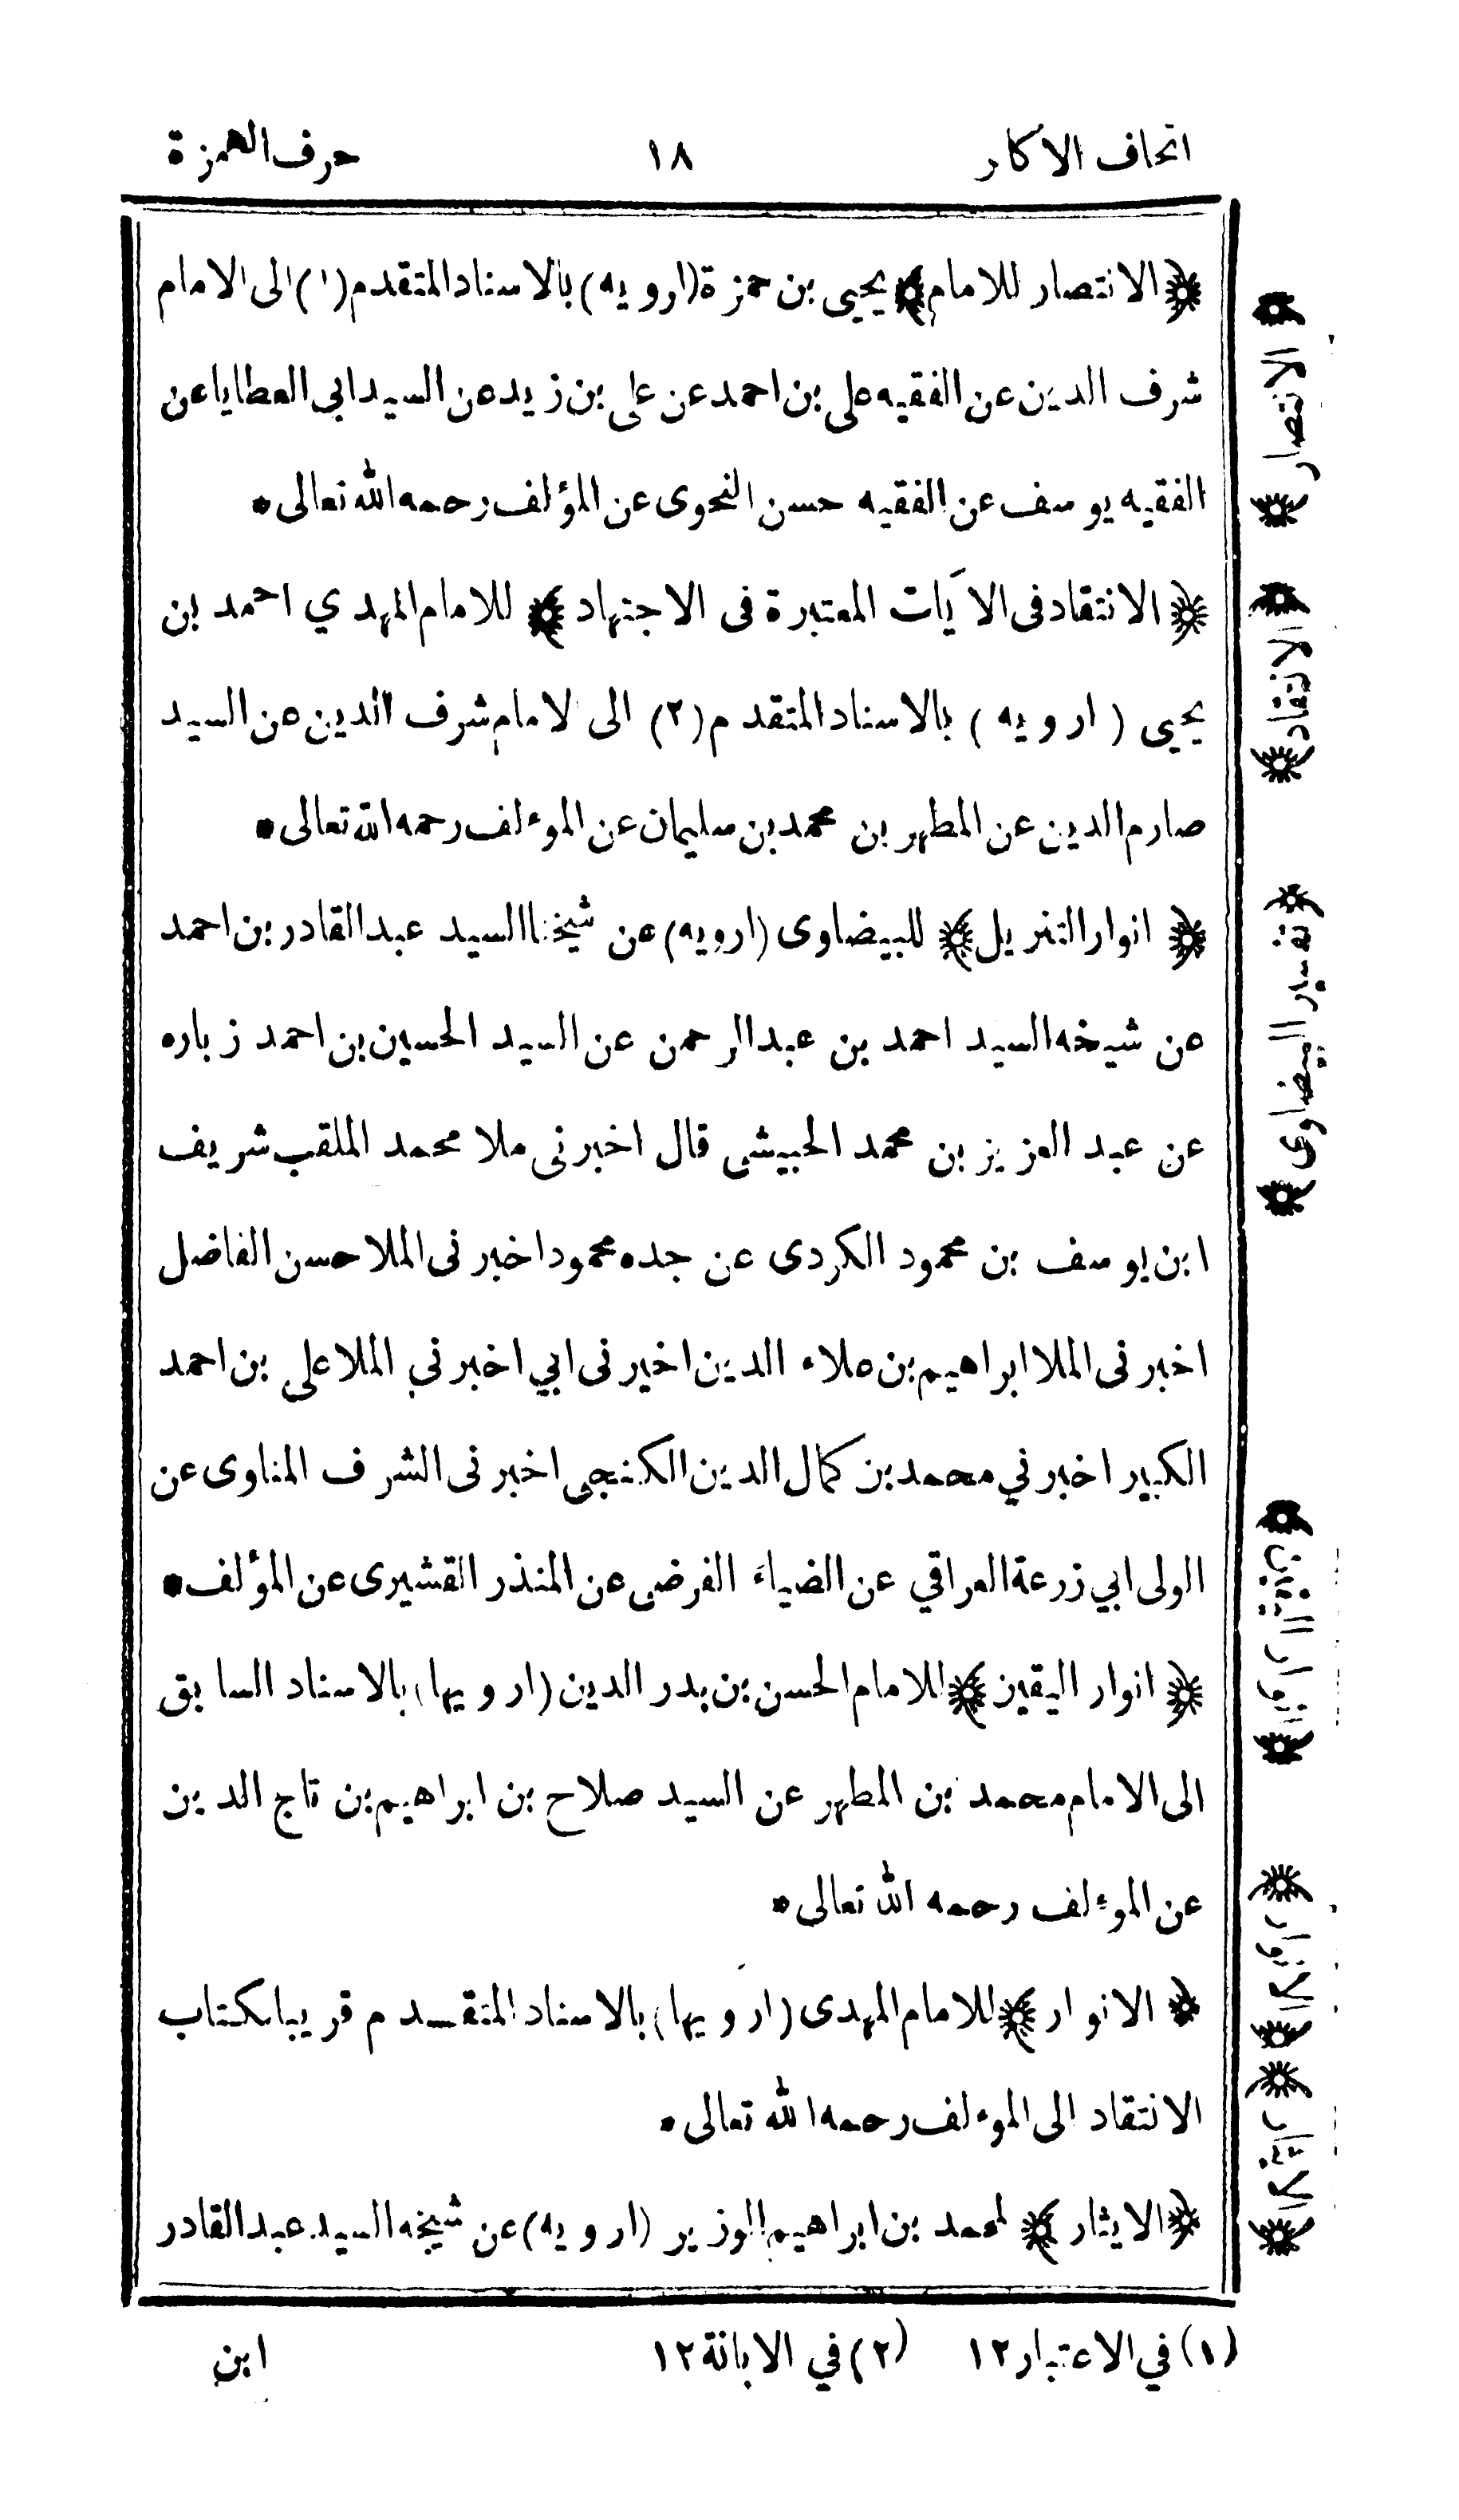 اتحاف الاكابر
١٨
حرف الهمزة
﴿الانتصار للامام﴾ يحيى بن حمزة (ارويه) بالاسناد المتقدم (١) الى الامام
شرف الدين عن الفقيه على بن احمد عن على بن زيد عن السيد ابي العطايا عن
الفقيه يوسف عن الفقيه حسن النحوى عن المؤلف رحمه الله تعالى •
﴿الانتقاد فى الآيات المعتبرة فى الاجتهاد﴾ للامام المهدي احمد بن
يحيى (ارويه) بالاسناد المتقدم (٢) الى لامام شرف الدين عن السيد
صارم الدين عن المطهر بن محمد بن سليمان عن الموءلف رحمه الله تعالى •
﴿انوار التنزيل﴾ للبيضاوى (ارويه) عن شيخنا السيد عبد القادر بن احمد
عن شيخه السيد احمد بن عبد الرحمن عن السيد الحسين بن احمد زباره
عن عبد العزيز بن محمد الحبيشى قال اخبرنى ملا محمد الملقب شريف
ابن يوسف بن محمود الكردى عن جده محمود اخبرنى الملا حسن الفاضل
اخبرنى الملا ابراهيم بن علاء الدين اخبرنى ابي اخبرني الملا على بن احمد
الكبير اخبرني محمد بن كمال الدين الكنجى اخبرنى الشرف المناوى عن
الولى ابي زرعة العراقي عن الضياء الفرضى عن المنذر القشيرى عن المؤلف •
﴿انوار اليقين﴾ للامام الحسن بن بدر الدين (ارويها) بالاسناد السابق
الى الامام محمد بن المطهر عن السيد صلاح بن ابراهيم بن تاج الدين
عن الموءلف رحمه الله تعالى •
﴿الانوار﴾ للامام المهدى (ارويها) بالاسناد المتقدم قريبا لكتاب
الانتقاد الى الموءلف رحمه الله تعالى •
﴿الايثار﴾ لمحمد بن ابراهيم الوزير (ارويه) عن شيخه السيد عبد القادر
﴿الانتصار﴾
﴿الانتقاد﴾
﴿تفسير البيضاوى﴾
﴿انوار اليقين﴾
﴿الانوار﴾
﴿الايثار﴾
(١) في الاعتبار ١٢
(٢) في الابانة ١٢
ابن